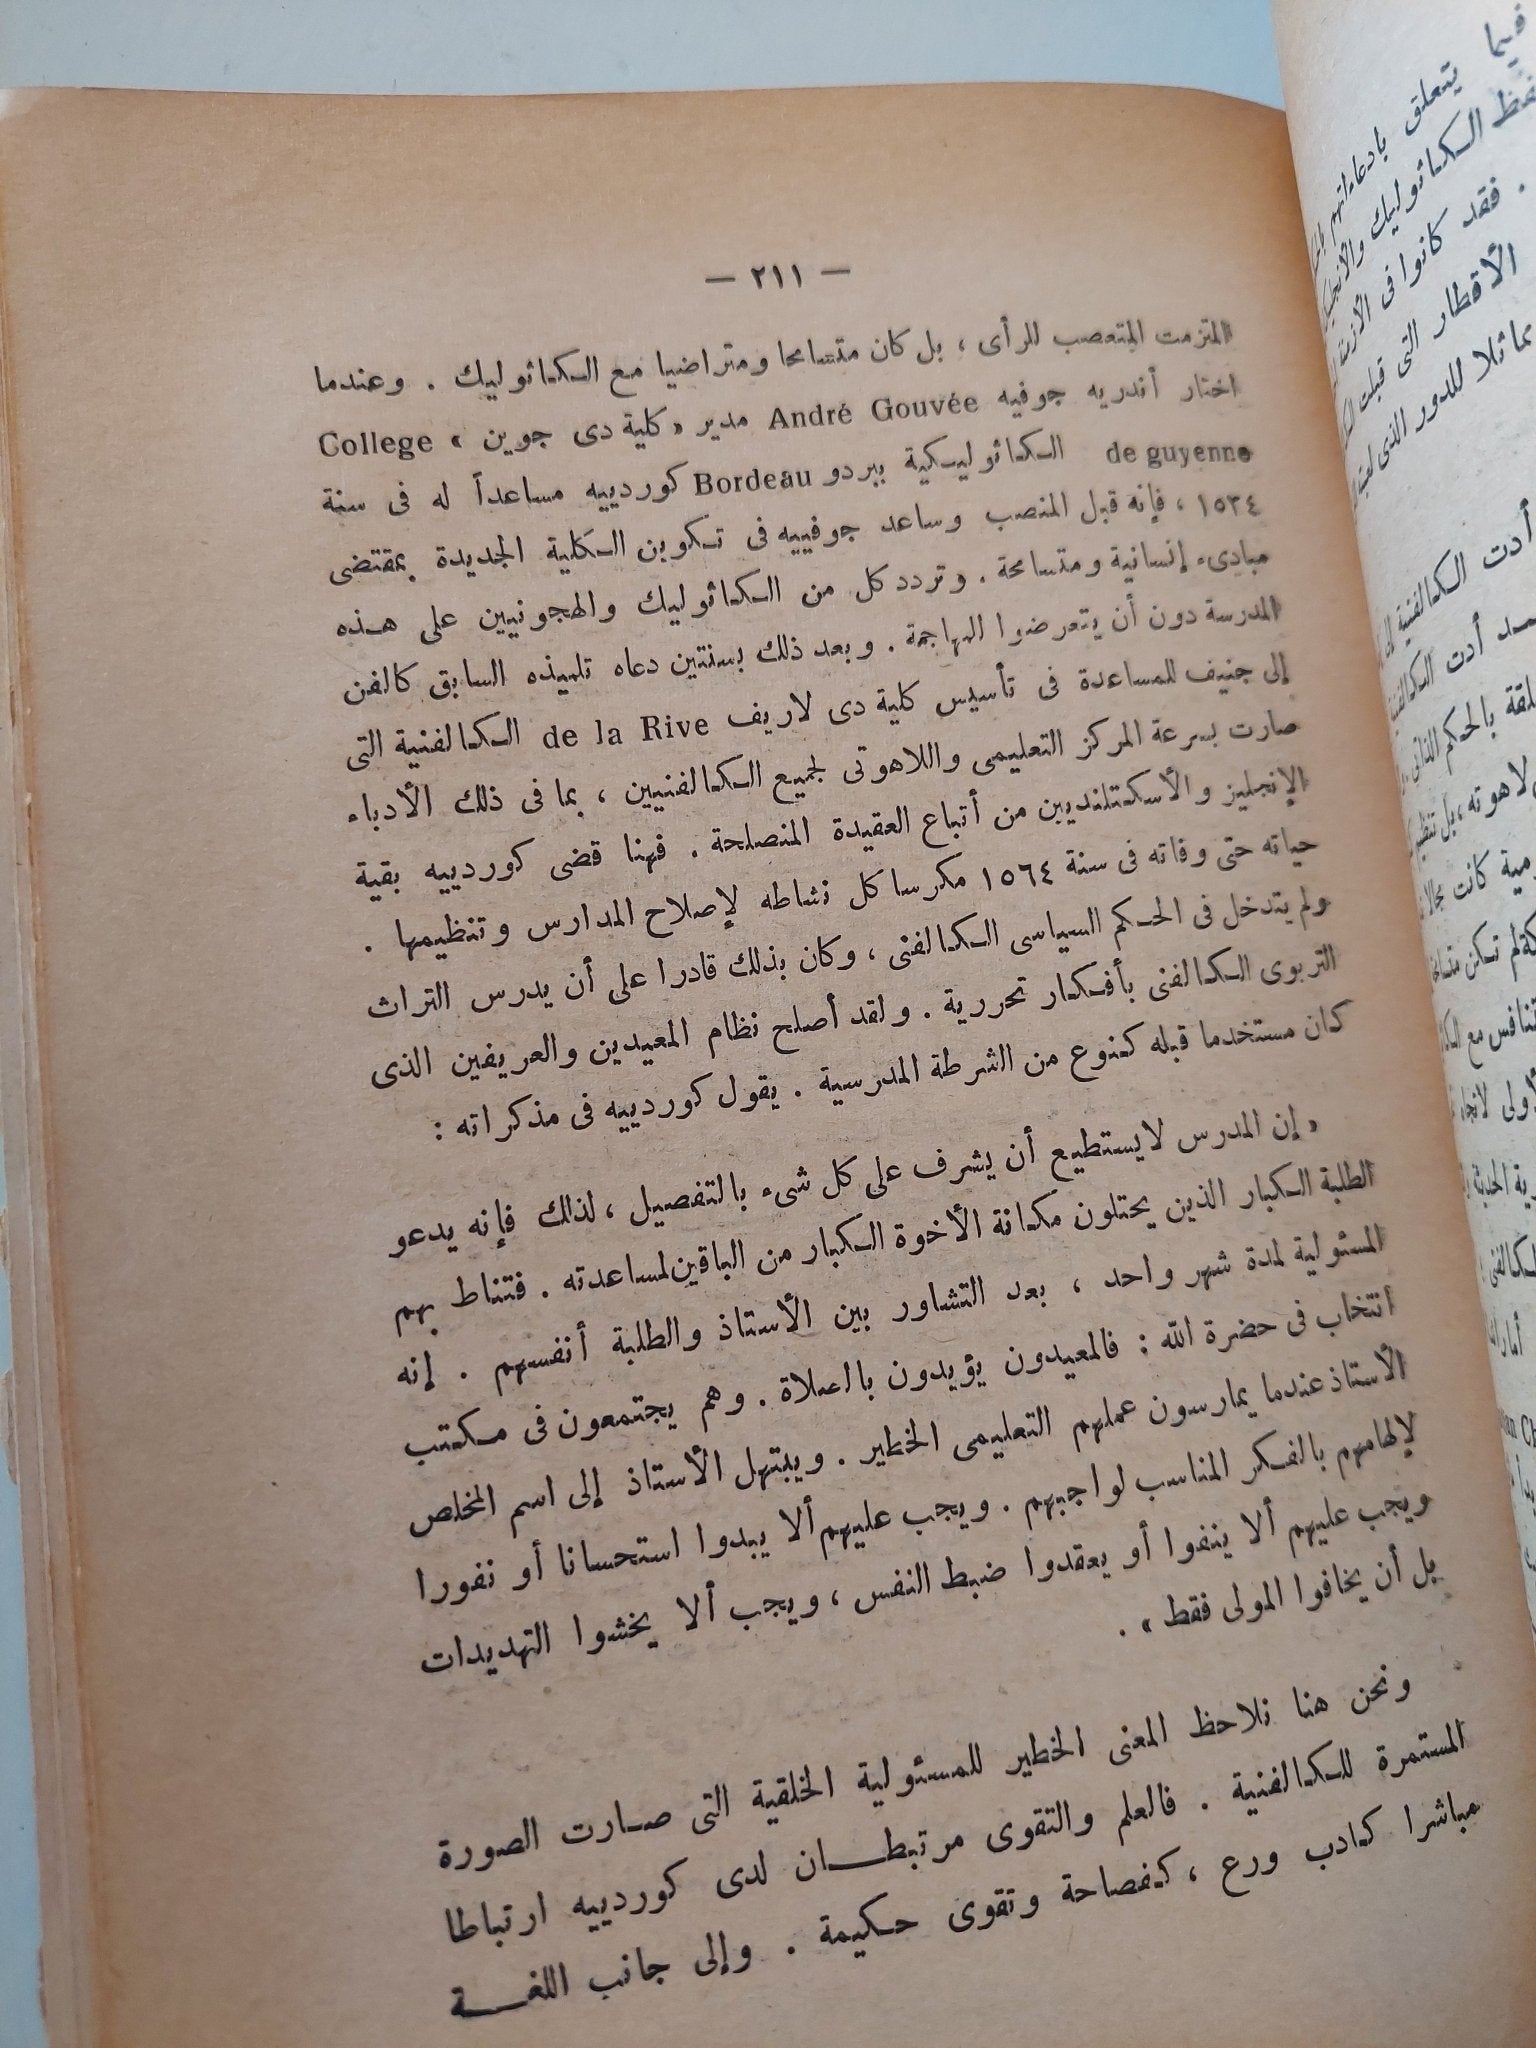 — ٢١١ —
المتزمت المتعصب للرأى ، بل كان متسامحا ومتراضيا مع الكاثوليك . وعندما
اختار أندريه جوفيه André Gouvée مدير « كلية دى جوين » College
de guyenne الكاثوليكية ببردو Bordeau كوردييه مساعداً له فى سنة
١٥٣٤ ، فإنه قبل المنصب وساعد جوفييه فى تكوين الكلية الجديدة بمقتضى
مبادىء إنسانية ومتسامحة . وتردد كل من الكاثوليك والهجونيين على هذه
المدرسة دون أن يتعرضوا المهاجمة . وبعد ذلك بسنتين دعاه تلميذه السابق كالفن
إلى جنيف للمساعدة فى تأسيس كلية دى لاريف de la Rive الكالفنية التى
صارت بسرعة المركز التعليمى واللاهوتى لجميع الكالفنيين ، بما فى ذلك الأدباء
الإنجليز والأسكتلنديين من أتباع العقيدة المنصلحة . فهنا قضى كوردييه بقية
حياته حتى وفاته فى سنة ١٥٦٤ مكرسا كل نشاطه لإصلاح المدارس وتنظيمها .
ولم يتدخل فى الحكم السياسى الكالفنى ، وكان بذلك قادرا على أن يدرس التراث
التربوى الكالفنى بأفكار تحررية . ولقد أصلح نظام المعيدين والعريفين الذى
كان مستخدما قبله كنوع من الشرطة المدرسية . يقول كوردييه فى مذكراته :
« إن المدرس لايستطيع أن يشرف على كل شىء بالتفصيل ، لذلك فإنه يدعو
الطلبة الكبار الذين يحتلون مكانة الأخوة الكبار من الباقين لمساعدته . فتناط بهم
المسئولية لمدة شهر واحد ، بعد التشاور بين الأستاذ والطلبة أنفسهم . إنه
انتخاب فى حضرة الله : فالمعيدون يؤيدون بالصلاة . وهم يجتمعون فى مكتب
الأستاذ عندما يمارسون عملهم التعليمى الخطير . ويبتهل الأستاذ إلى اسم المخلص
لإلهامهم بالفكر المناسب لواجبهم . ويجب عليهم ألا يبدوا استحسانا أو نفورا
ويجب عليهم ألا ينفوا أو يعقدوا ضبط النفس ، ويجب ألا يخشوا التهديدات
بل أن يخافوا المولى فقط » .
ونحن هنا نلاحظ المعنى الخطير للمسئولية الخلقية التى صارت الصورة
المستمرة للكالفنية . فالعلم والتقوى مرتبطان لدى كوردييه ارتباطا
مباشرا كادب ورع ، كفصاحة وتقوى حكيمة . وإلى جانب اللغة
فيما يتعلق بادعاءاتهم
الكاثوليك
. فقد كانوا فى
الأقطار التى قبلت
مماثلا للدور الذى
أدت الكالفنية
أدت
بالحكم الذاتى
كانت
لم تكن